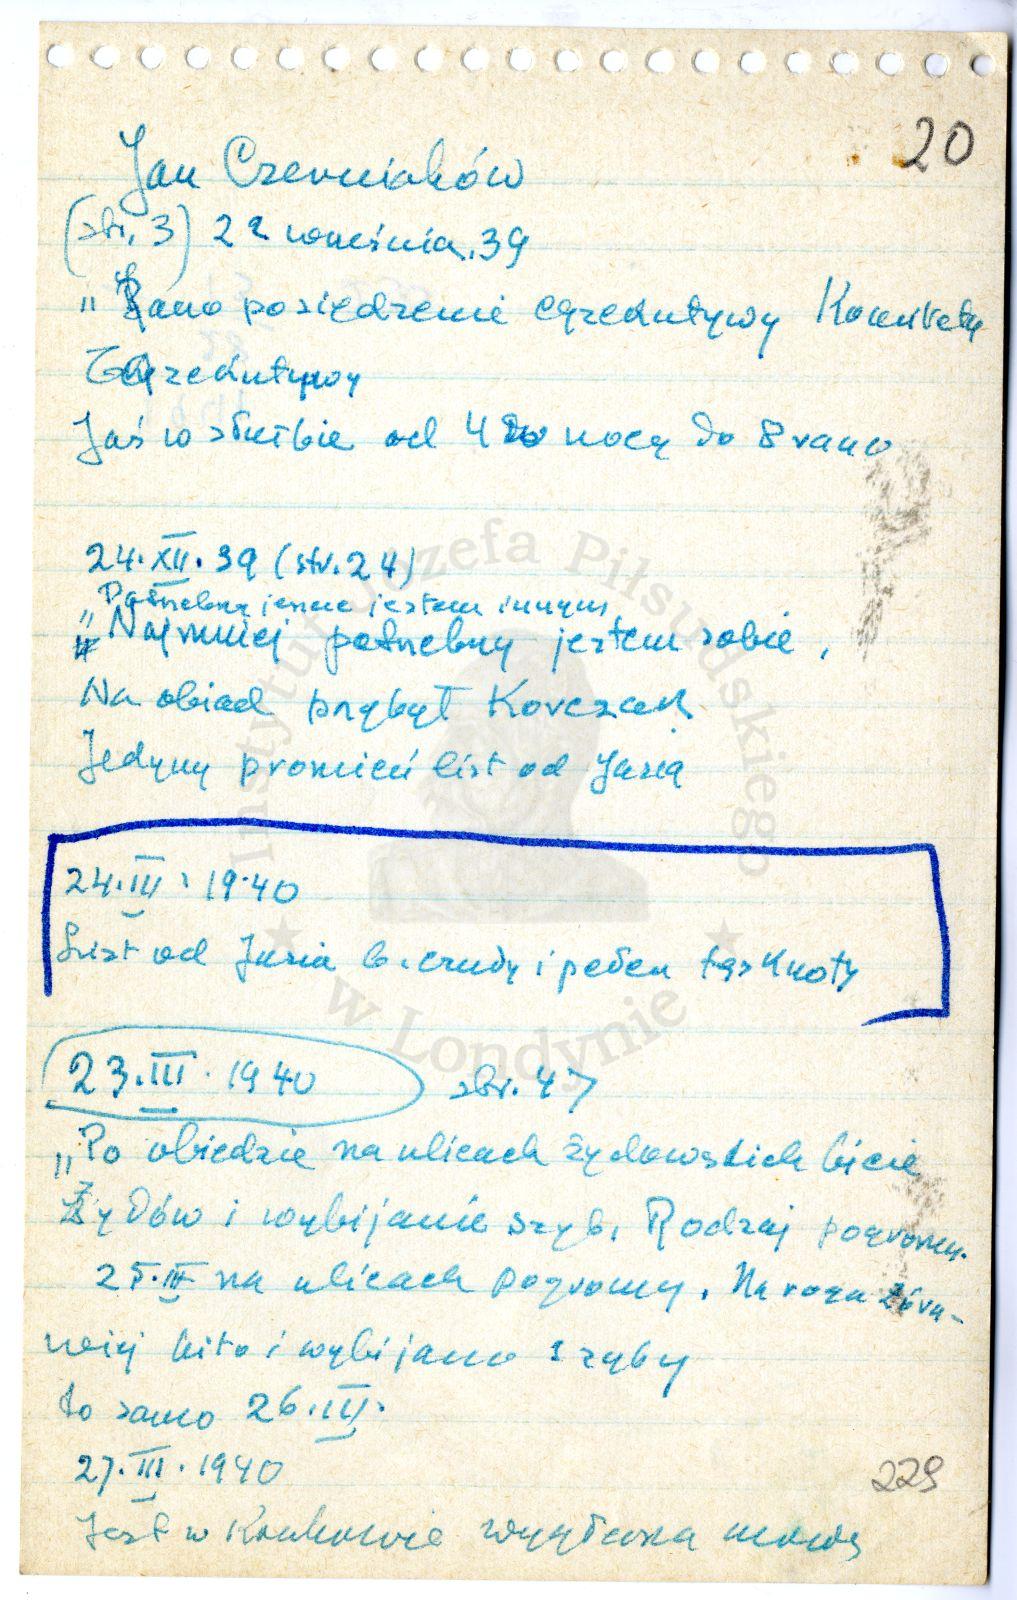 20
Jan Czerniaków
(str. 3) 22 września 39
"Rano posiedzenie egzekutywy Komitetu
Egzekutywy
Jaś w służbie od 4 w nocy do 8 rano
24.XII.39 (str. 24)
"Potrzebny jestem innym
Najmniej potrzebny jestem sobie,
Na obiad przybył Korczak
Jedyny promień list od Jasia
24.III.1940
List od Jasia b. chudy i pełen tęsknoty
23.III.1940 str. 47
"Po obiedzie na ulicach żydowskich bicie
Żydów i wybijanie szyb. Rodzaj pogromu.
25.III na ulicach pogromy. Na rogu Żóra-
wiej bito i wybijano szyby
to samo 26.III.
27.III.1940
Jest w Krakowie mowa
229
Instytut Józefa Piłsudskiego
w Londynie